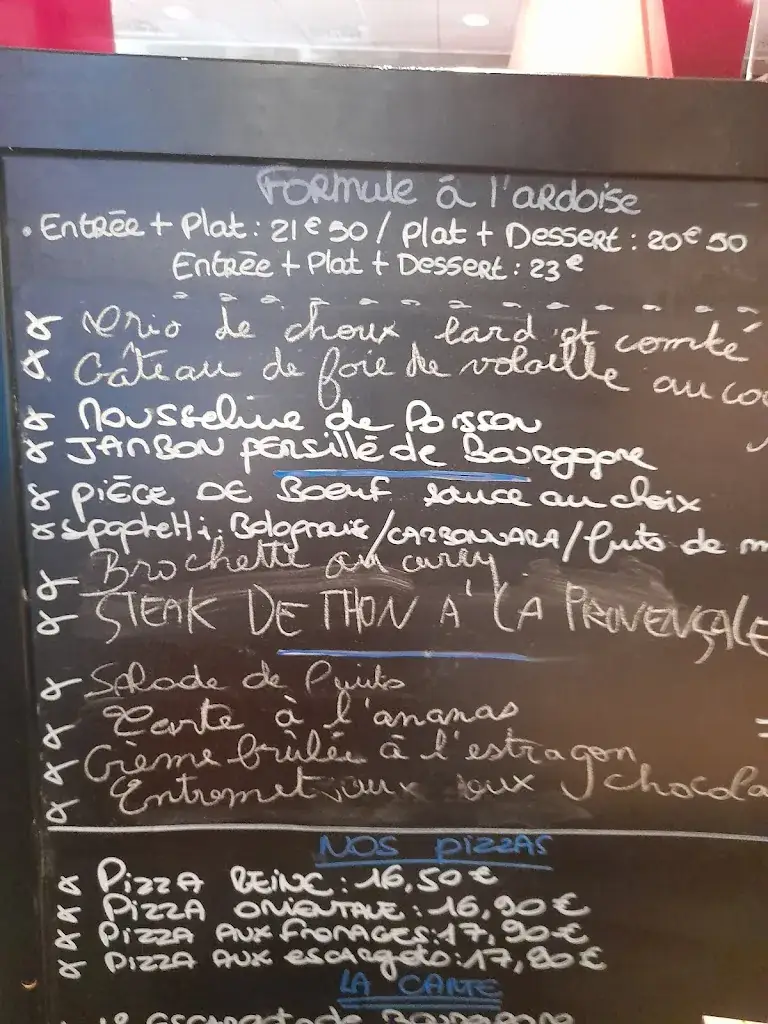 Formule à l'ardoise
• Entrée + Plat : 21€50 / Plat + Dessert : 20€50
Entrée + Plat + Dessert : 23€
de choux lard et comté
Gâteau de foie de volaille au co
Mousseline de Poisson
JAMBON persillé de Bourgogne
pièce DE Boeuf sauce au choix
spaghetti : Bolognaise / CARBONNARA / fruits de m
Brochette au curry
STEAK DE THON À LA PROVENÇALE
Salade de Fruits
Tarte à l'ananas
Crème brûlée à l'estragon
Entremet aux chocola
NOS pizzas
Pizza REINE : 16,50 €
Pizza ORIENTALE : 16,90 €
Pizza AUX fromages : 17,90 €
Pizza AUX escargots : 17,90 €
LA CARTE